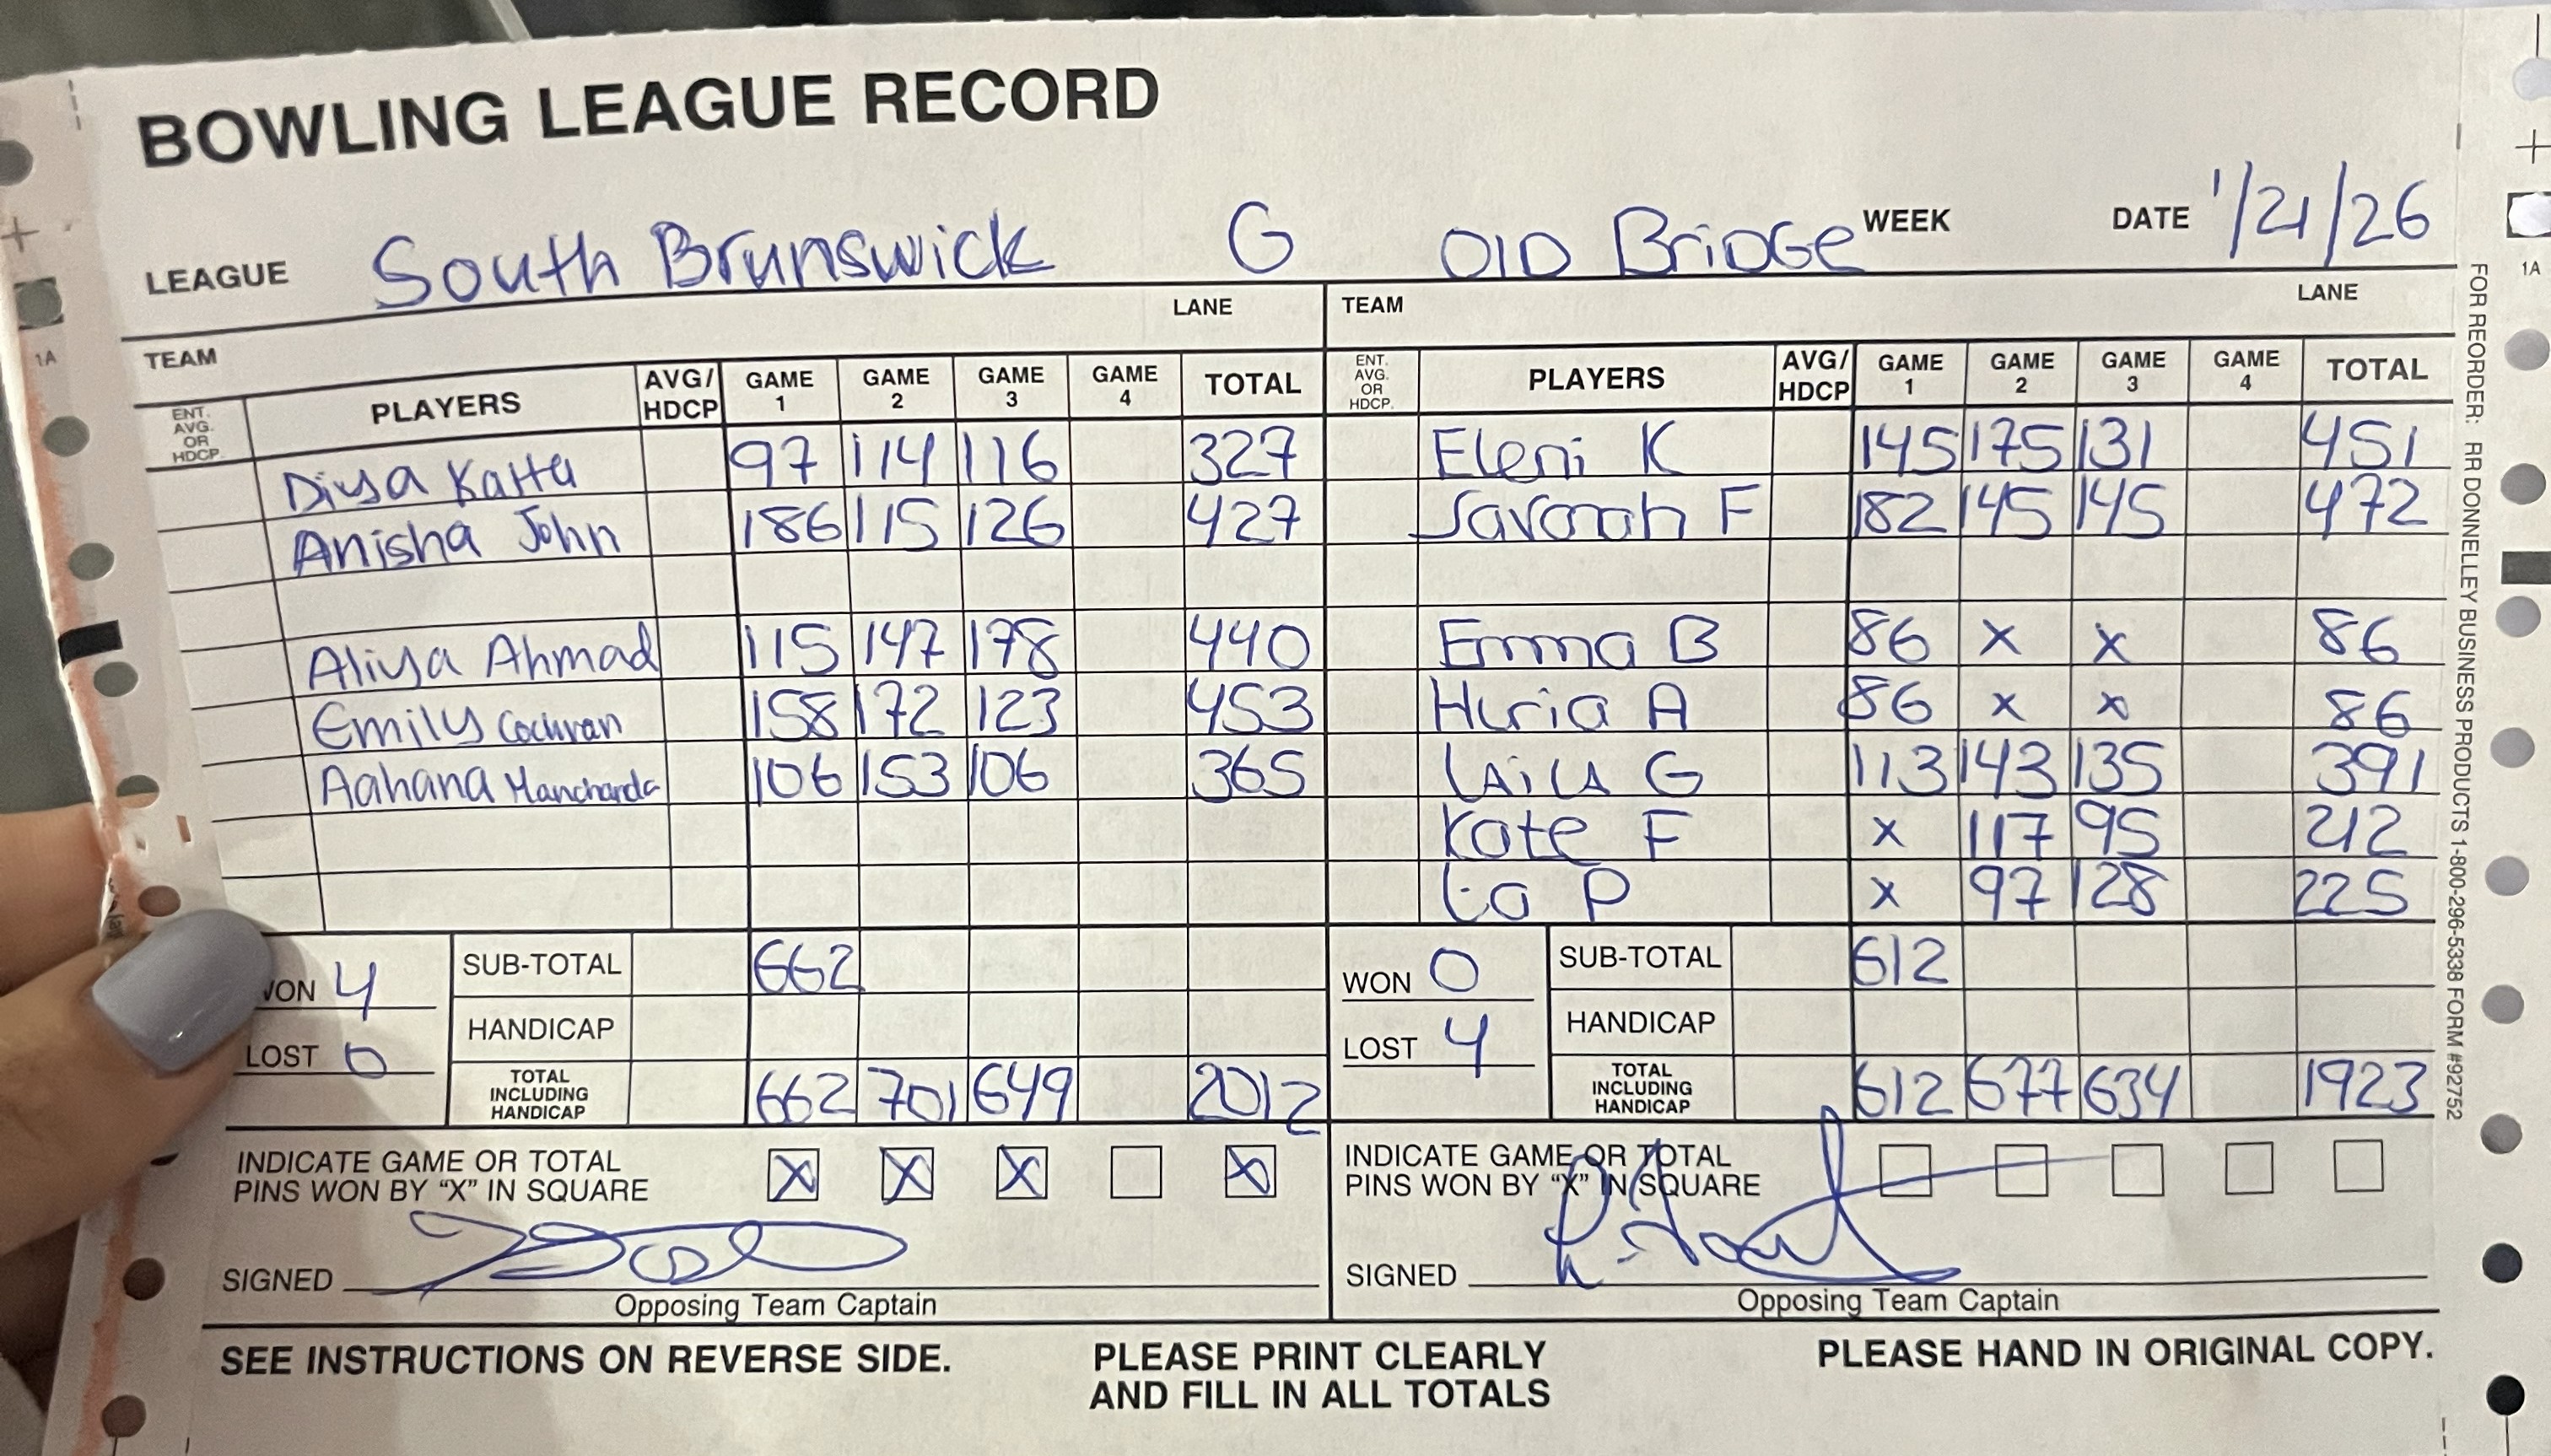 BOWLING LEAGUE RECORD
LEAGUE South Brunswick G Old Bridge WEEK DATE 1/21/26
TEAM LANE TEAM LANE
ENT. AVG. OR HDCP. PLAYERS AVG/HDCP GAME 1 GAME 2 GAME 3 GAME 4 TOTAL ENT. AVG. OR HDCP. PLAYERS AVG/HDCP GAME 1 GAME 2 GAME 3 GAME 4 TOTAL
Diya Katta 97 114 116 327 Eleni K 145 175 131 451
Anisha John 186 115 126 427 Savanah F 182 145 145 472
Aliya Ahmad 115 147 178 440 Emma B 86 x x 86
Emily Cochran 158 172 123 453 Huria A 86 x x 86
Aahana Manchanda 106 153 106 365 Laila G 113 143 135 391
Kate F x 117 95 212
P x 97 128 225
WON 4 SUB-TOTAL 662 WON 0 SUB-TOTAL 612
LOST 0 HANDICAP LOST 4 HANDICAP
TOTAL INCLUDING HANDICAP 662 701 649 2012 TOTAL INCLUDING HANDICAP 612 677 634 1923
INDICATE GAME OR TOTAL PINS WON BY "X" IN SQUARE X X X X INDICATE GAME OR TOTAL PINS WON BY "X" IN SQUARE
SIGNED SIGNED
Opposing Team Captain Opposing Team Captain
SEE INSTRUCTIONS ON REVERSE SIDE. PLEASE PRINT CLEARLY AND FILL IN ALL TOTALS PLEASE HAND IN ORIGINAL COPY.
FOR REORDER: RR DONNELLEY BUSINESS PRODUCTS 1-800-296-5338 FORM #92752
1A
1A